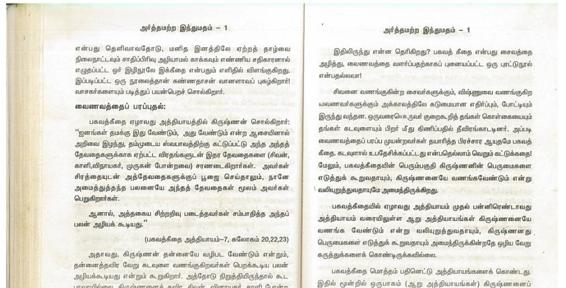 அர்த்தமற்ற இந்துமதம் – 1
என்பது தெளிவாவதோடு, மனித இனத்திலே ஏற்றத் தாழ்வை
நிலைநாட்டவும் சாதிப்பிரிவு அழியாமல் காக்கவும் எண்ணிய சதிகாரனால்
எழுதப்பட்ட ஓர் இழிநூலே இக்கீதை என்பதும் எளிதில் விளங்குகிறது.
இப்படிப்பட்ட ஒரு நூலைத்தான் கண்ணதாசன் வானளாவப் புகழ்கிறார்!
வாசகர்களையும் படித்துப் பயன்பெறச் சொல்கிறார்.
வைணவத்தைப் பரப்புதல்:
பகவத்கீதை ஏழாவது அத்தியாயத்தில் கிருஷ்ணன் சொல்கிறார்:
"ஜனங்கள் தமக்கு இது வேண்டும், அது வேண்டும் என்ற ஆசையினால்
அறிவை இழந்து, தம்முடைய ஸ்வபாவத்திற்கு கட்டுப்பட்டு அந்த அந்தத்
தேவதைகளுக்காக ஏற்பட்ட விரதங்களுடன் இதர தேவதைகளை (சிவன்,
காளி,விநாயகர், முருகன் போன்றவை) சரணடைகிறார்கள். அவர்கள்
சிரத்தையுடன் அத்தேவதைகளுக்குப் பூஜை செய்தாலும், நானே
அமைத்துத்தந்த பலனையே அந்தத் தேவதைகள் மூலம் அவர்கள்
பெறுகிறார்கள்.
ஆனால், அத்தகைய சிற்றறிவு படைத்தவர்கள் சம்பாதித்த அந்தப்
பலன் அழியக் கூடியது."
(பகவத்கீதை அத்தியாயம்–7, சுலோகம் 20,22,23)
அதாவது, கிருஷ்ணன் தன்னையே வழிபட வேண்டும் என்றும்,
தன்னைத்தவிர வேறு கடவுளை வணங்குகிறவர்கள் பெறக்கூடிய பலன்
அழியக்கூடியது என்றும் கூறுகிறார். அத்தோடு நிறுத்தியிருந்தால் கூட
அர்த்தமற்ற இந்துமதம் – 1
இதிலிருந்து என்ன தெரிகிறது? பகவத் கீதை என்பது சைவத்தை
அழித்து, வைணவத்தை வளர்ப்பதற்காகப் புனையப்பட்ட ஒரு புரட்டுநூல்
என்பதல்லவா!
சிவனை வணங்குகின்ற சைவர்களுக்கும், விஷ்ணுவை வணங்குகிற
வைணவர்களுக்கும் அக்காலத்திலே கடுமையான எதிர்ப்பும், போட்டியும்
இருந்து வந்தன. ஒருவரையொருவர் குறைகூறித் தங்கள் கொள்கையையும்
தங்கள் கடவுளையும் பிறர் மீது திணிப்பதில் தீவிரங்காட்டினர். அப்படி
வைணவத்தைப் பரப்ப முயன்றவர்கள் தயாரித்த பிரச்சார ஆயுதமே பகவத்
கீதை. கடவுளால் உபதேசிக்கப்பட்டது என்பதெல்லாம் வெறும் கட்டுக்கதை!
மேலும், பகவத்கீதையின் பெரும்பகுதி கிருஷ்ணனின் பெருமைகளை
எடுத்துக் கூறுவதாயும், கிருஷ்ணனையே வணங்கவேண்டும் என்று
வலியுறுத்துவதாயுமே அமைந்திருக்கிறது.
பகவத்கீதையில் ஏழாவது அத்தியாயம் முதல் பன்னிரெண்டாவது
அத்தியாயம் வரையிலுள்ள ஆறு அத்தியாயங்கள் கிருஷ்ணனையே
வணங்க வேண்டும் என்று வலியுறுத்துவதாயும், கிருஷ்ணனது
பெருமைகளை எடுத்துக் கூறுவதாயும் அமைந்திருக்கின்றதே ஒழிய வேறு
கருத்துக்களைக் கொண்டிருக்கவில்லை.
பகவத்கீதை மொத்தம் பதினெட்டு அத்தியாயங்களைக் கொண்டது.
இதில் மூன்றில் ஒருபாகம் (ஆறு அத்தியாயங்கள்) கிருஷ்ணனைப்